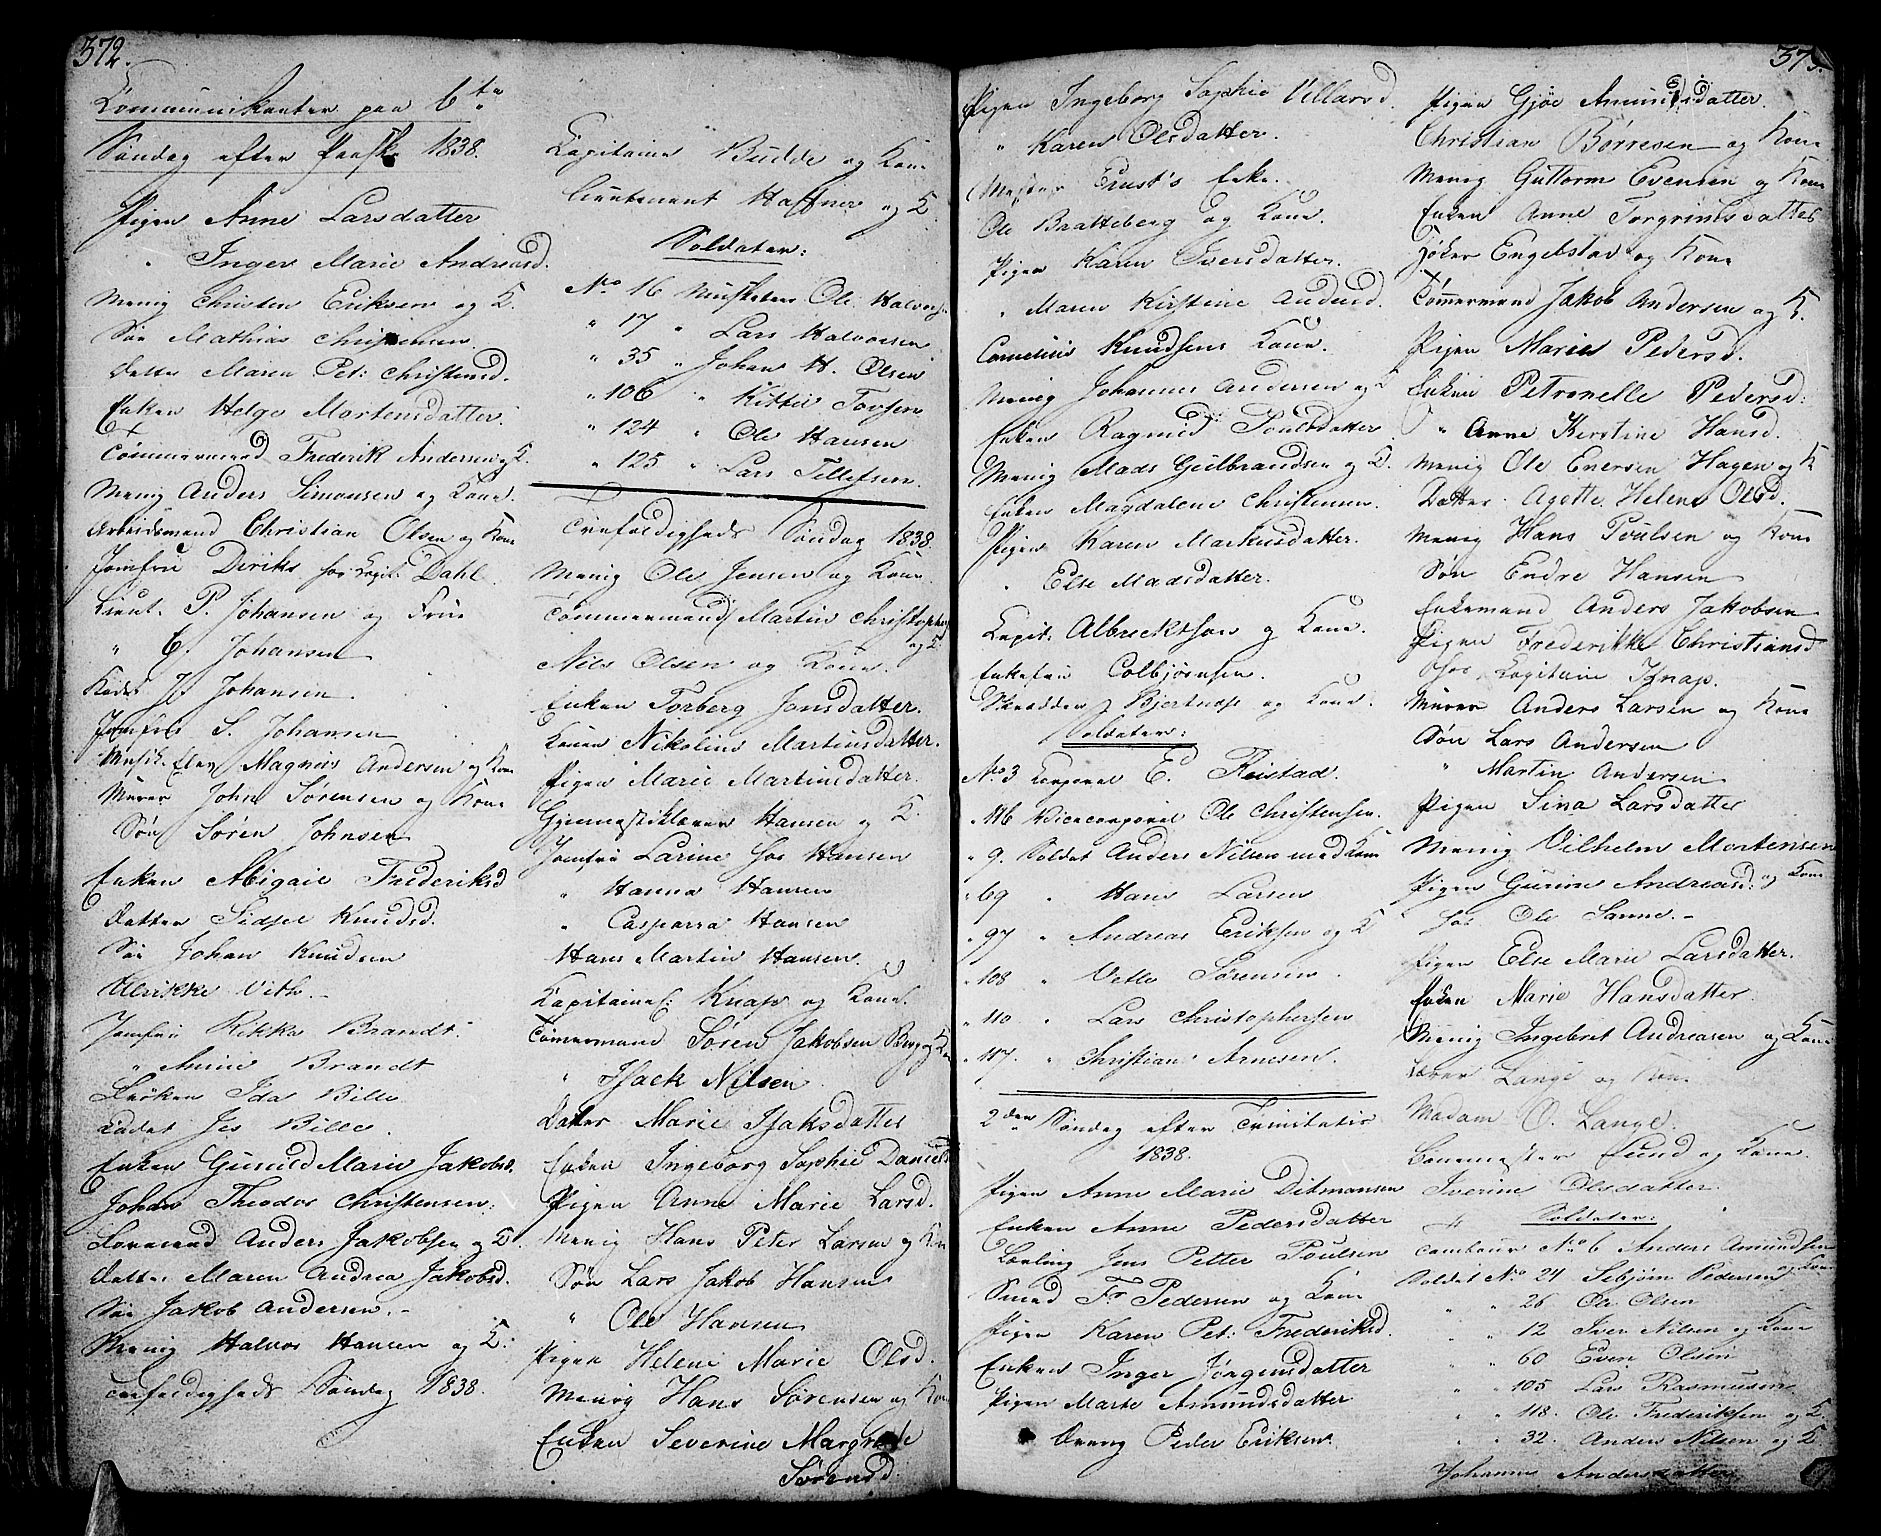 372.
Communikanter paa 6te
Søndag efter Paaske 1838.
Pigen Anne Larsdatter
" Inger Marie Andreasd.
Menig Christen Eriksen og K.
Søn Mathias Christensen.
Datter Maren Pet: Christensd.
Enken Helge Mortensdatter.
Tømmermand Frederik Andersen og K.
Menig Anders Simonsen og Kone.
Arbeidsmand Christian Olsen og Kone
Jomfru Diriks hos Capit. Dahl.
Lieut. P. Johansen og Frue
" C. Johansen
Kadet J. Johansen.
Jomfru S. Johansen
Musik. Elev Magnus Andersen og Kone
Murer John Sørensen og Kone
Søn Søren Johnsen
Enken Abigael Frederiksd
Datter Sidsel Knudsd.
Søn Johan Knudsen
Ulrikke Vith.
Jomfru Rikka Brandt.
" Anne Brandt
Frøken Ida Bille
Cadet Jes Bille.
Enken Gunild Marie Jakobsd.
Johan Theodor Christensen.
Anders Jakobsen og K.
Datter Maren Andrea Jakobsd.
Søn Jakob Andersen.
Menig Halvor Hansen og K:
Trefoldigheds Søndag 1838.
Kapitaine Budde og Kone
Lieutenant Haffner og K.
Soldater:
No 16 Musketer Ole Halvors.
" 17 " Lars Halvorsen
" 35 " Johan H. Olsen
" 106 " Kittil Torsen
" 124 " Ole Hansen
" 125 " Lars Tellefsen.
Trefoldigheds Søndag 1838.
Menig Ole Jensen og Kone.
Tømmermand Martin Christopher
og K.
Nils Olsen og Kone.
Enken Torberg Jonsdatter.
Konen Nikoline Martinsdatter.
Pigen Marie Martinsdatter.
Gymnastiklærer Hansen og K.
Jomfru Larine hos Hansen
" Hanna Hansen
" Casparra Hansen
Hans Martin Hansen.
Kapitaine Knap og Kone.
Tømmermand Søren Jakobsen Berg og Kone
" Isack Nilsen
Datter Marie Isaksdatter
Enken Ingeborg Sophie Daniels
Pigen Anne Marie Larsd.
Menig Hans Peter Larsen og Kone
Søn Lars Jakob Hansen
" Ole Hansen
Pigen Helene Marie Olsd.
Menig Hans Sørensen og Kone
Enken Severine Margrete
Sørensd.
373.
Pigen Ingeborg Sophie Villarsd.
" Karen Olsdatter.
Mester Ernst's Enke.
Ole Braatteberg og Kone.
Pigen Karen Iversdatter.
" Maren Kirstine
Cornelius Knudsens Kone.
Menig Johannes Andersen og K
Enken Ragnild Poulsdatter
Menig Mads Gulbrandsen og K.
Enken Magdalene Christensen.
Pigen Karen Markusdatter.
" Else Madsdatter.
Capit. Albrecktson og Kone.
Enkefru Colbjørnsen.
Skrædder Bjertnæs og Kone.
Soldater:
No 3 Corporal E. Reistad.
" 116 Vicecorporal Ole Christensen.
" 9. Soldat Anders Nilsen med Kone
" 69 " Hans Larsen
" 97 " Andreas Eriksen og K
" 108 " Vetle Sørensen
" 110 " Lars Christophersen
" 117. " Christian Arnesen.
2den Søndag efter Trinitatis
1838.
Pigen Anne Marie Ditmansen
Enken Anne Pedersdatter
Lærling Jens Petter Poulsen
Smed Fr Pedersen og Kone
Pigen Karen Pet: Frederiksd.
Enken Inger Jørgensdatter
Pigen Marte Amundsdatter
Dreng Peder Eriksen.
Pigen Gjøe Amundsdatter.
Christian Børresen og Kone
Menig Guttorm Evensen og Kone
Enken Anne Torgrimsdatter
Engelstad og Kone
Tømmermand Jakob Andersen og K.
Pigen Maria Pedersd.
Enken Petronelle Pedersd:
" Anne Kirstine Hansd.
Menig Ole Enersen Hagen og K
Datter Agotte Helene Olsd.
Menig Hans Poulsen og Kone
Søn Endre Hansen
Enkemand Anders Jakobsen
Pigen Frederikke Christiansd
hos Capitain Knap.
Murer Anders Larsen og Kone
Søn Lars Andersen
" Martin Andersen
Pigen Sina Larsdatter
Menig Vilhelm Mortensen
og Kone
Pigen Gurine Andreasd:
hos Ole Sanne.
Pigen Else Marie Larsdatter.
Enken Marie Hansdatter.
Menig Ingebret Andreasen og Kone
Lærer Lange og Kone
Madam O. Lange.
Lund og Kone.
Iverine Olsdatter.
Soldater:
Tambour No 6 Anders Amundsen
og Kone
Soldat No 24 Sebjørn Pedersen
" " 26 Ole Olsen
" " 12 Iver Nilsen og Kone
" " 60 Even Olsen
" " 105 Lars Rasmusen
" " 118. Ole Frederiksen og K.
" " 32. Anders Nilsen og K
Johanne Andersdatter